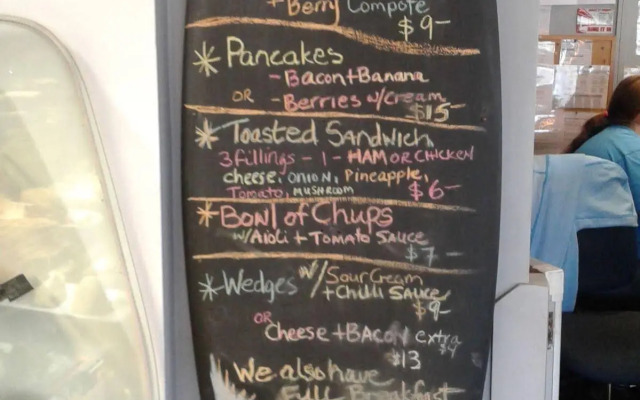 + Berry Compote
$9-
* Pancakes
- Bacon + Banana
OR - Berries w/ Cream
$15-
* Toasted Sandwich
3 fillings - 1 - HAM OR CHICKEN
cheese, onion, Pineapple,
Tomato, MUSHROOM $6-
* Bowl of Chups
w/ Aioli + Tomato Sauce
$7-
* Wedges w/ Sour Cream
+ Chilli Sauce
$9-
OR
Cheese + BACON extra
$4
$13
We also have
Full Breakfast